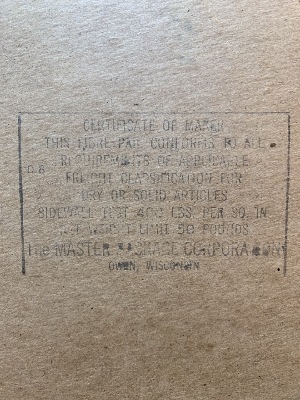 CERTIFICATE OF MAKER
THIS FIBRE PAIL CONFORMS TO ALL
0.8
REQUIREMENTS OF APPLICABLE
FREIGHT CLASSIFICATION FOR
DRY OR SOLID ARTICLES
SIDEWALL TEST 400 LBS. PER SQ. IN.
WEIGHT LIMIT 90 POUNDS
The MASTER PACKAGE CORPORATION
OWEN, WISCONSIN